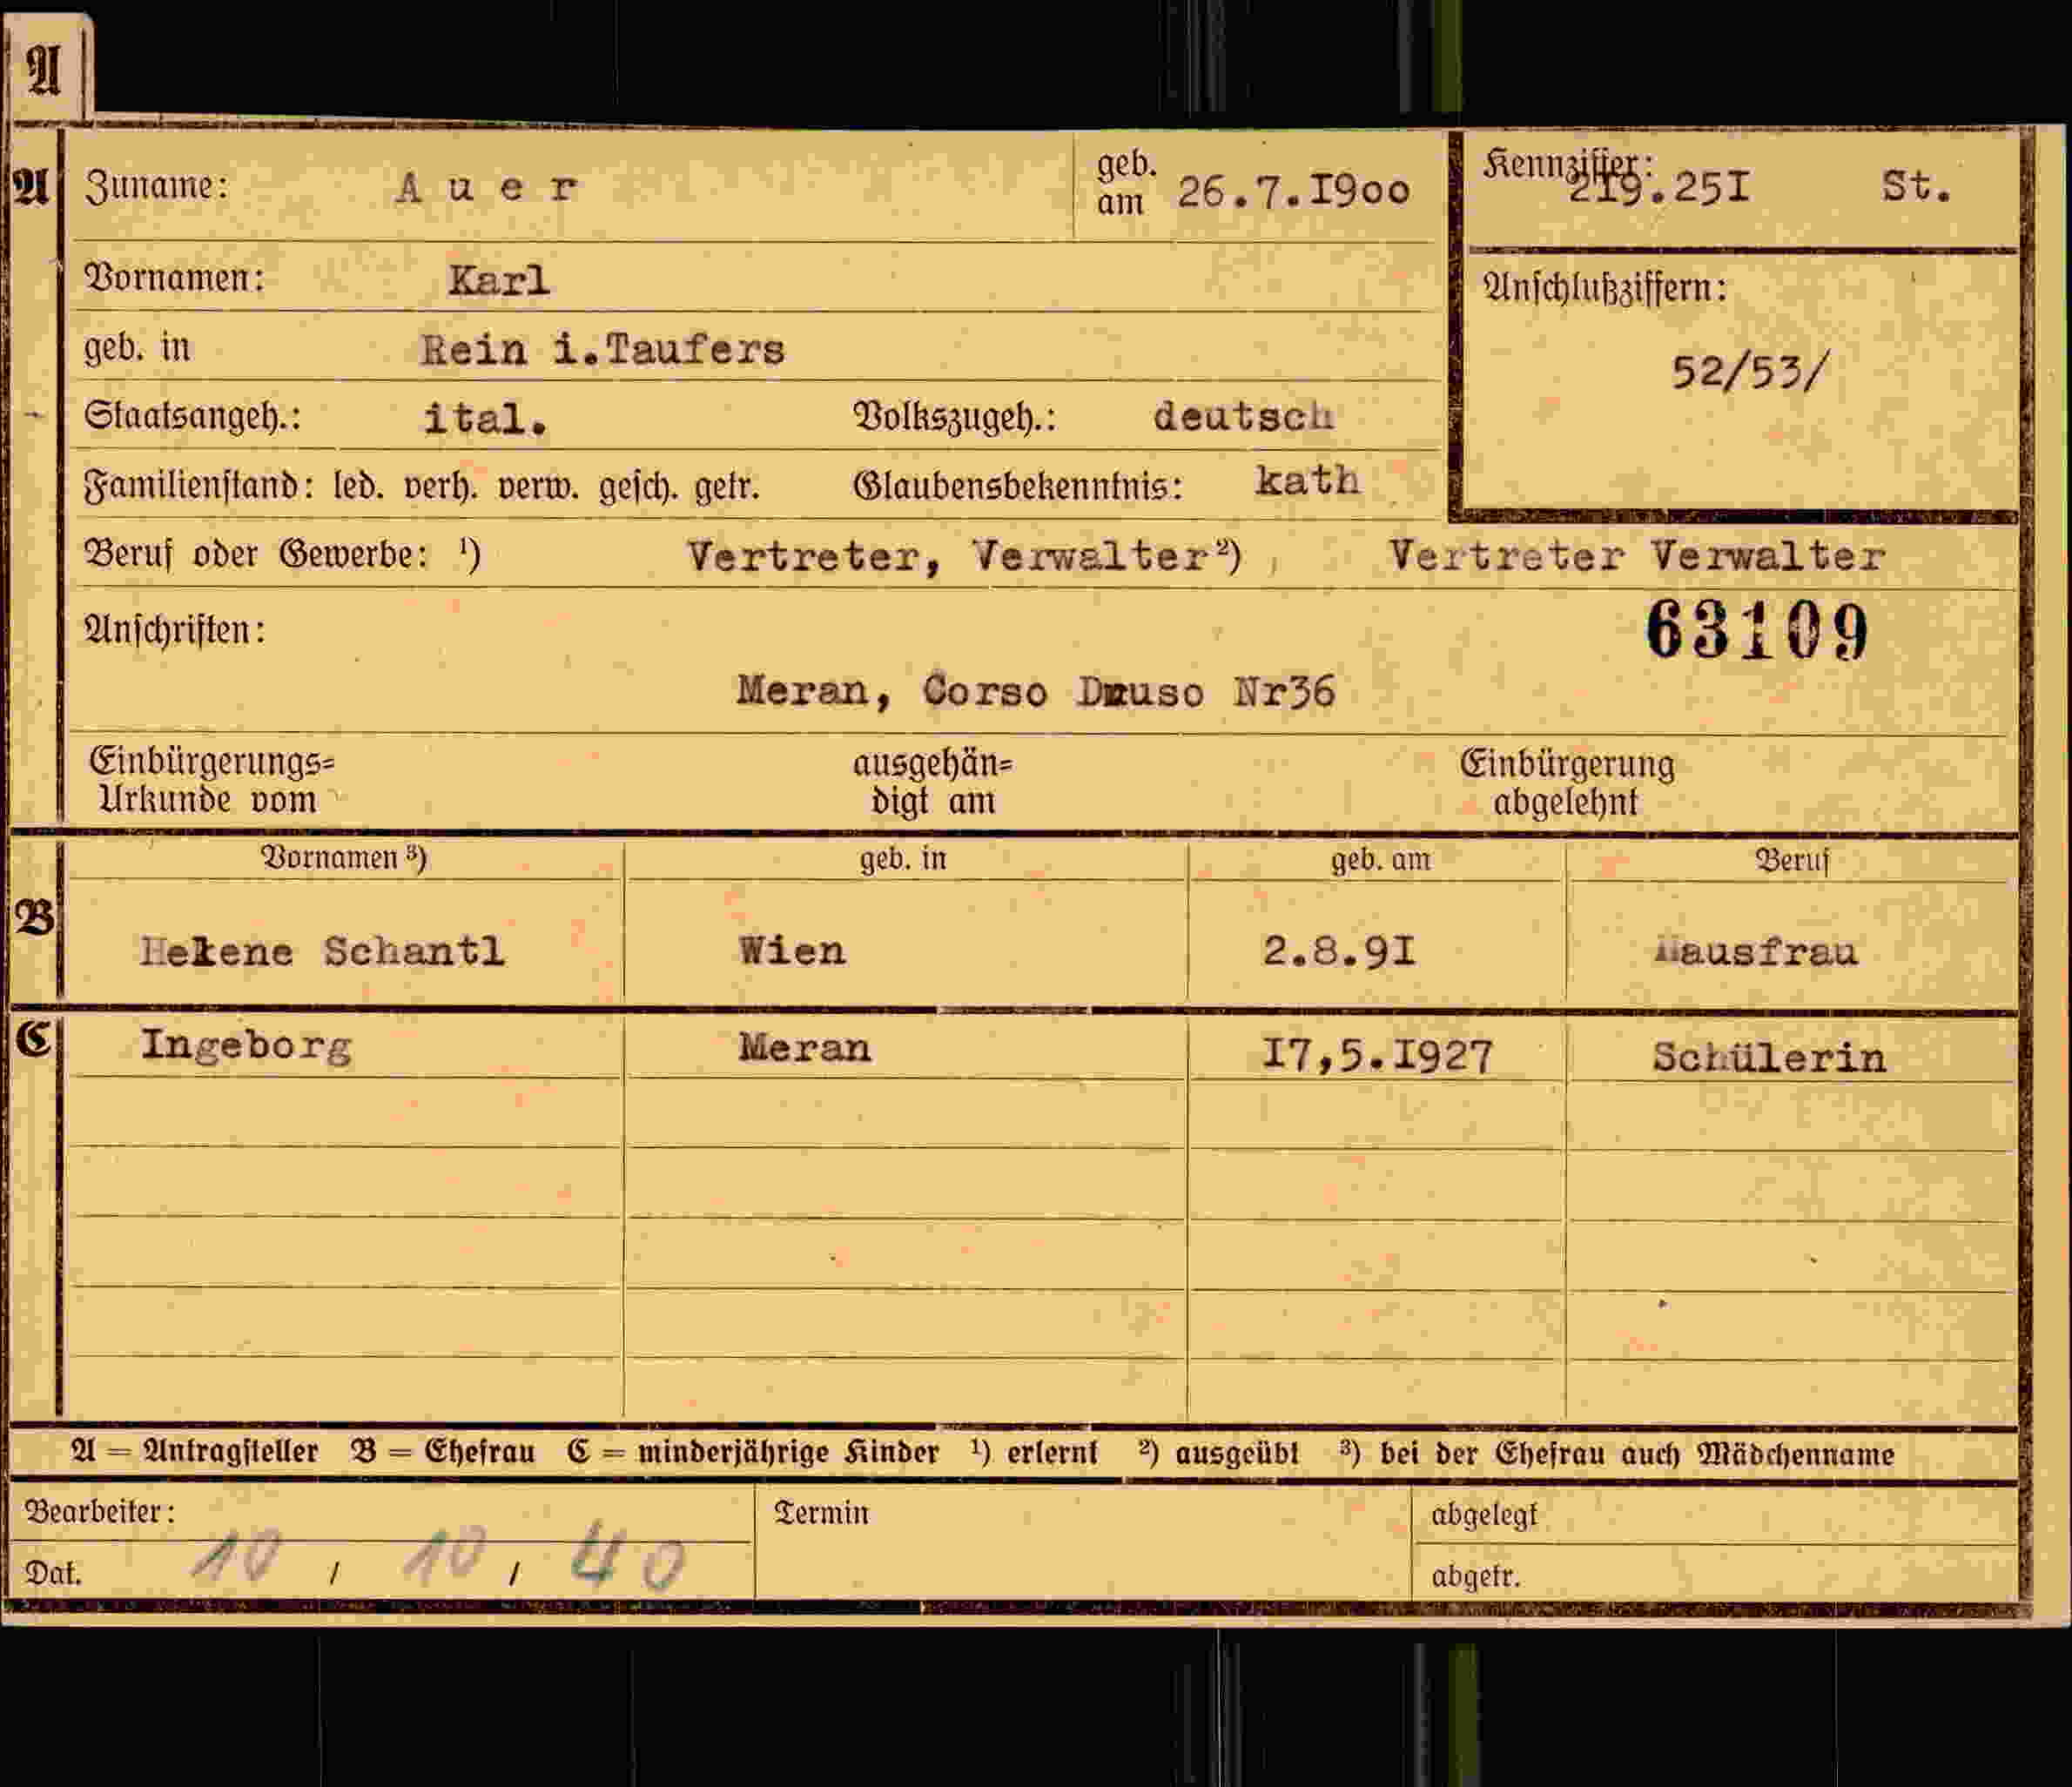 A
A Zuname: Auer geb. am 26.7.I9oo Kennziffer: 219.25I St.
Vornamen: Karl Anschlußziffern:
geb. in Rein i.Taufers 52/53/
Staatsangeh.: ital. Volkszugeh.: deutsch
Familienstand: led. verh. verw. gesch. getr. Glaubensbekenntnis: kath
Beruf oder Gewerbe: ¹) Vertreter, Verwalter ²) Vertreter Verwalter
Anschriften: 63109
Meran, Corso Druso Nr36
Einbürgerungs= ausgehän= Einbürgerung
Urkunde vom digt am abgelehnt
Vornamen ³) geb. in geb. am Beruf
B Helene Schantl Wien 2.8.9I Hausfrau
C Ingeborg Meran I7,5.I927 Schülerin
A = Antragsteller B = Ehefrau C = minderjährige Kinder ¹) erlernt ²) ausgeübt ³) bei der Ehefrau auch Mädchenname
Bearbeiter: Termin abgelegt
Dat. 10 / 10 / 40 abgetr.